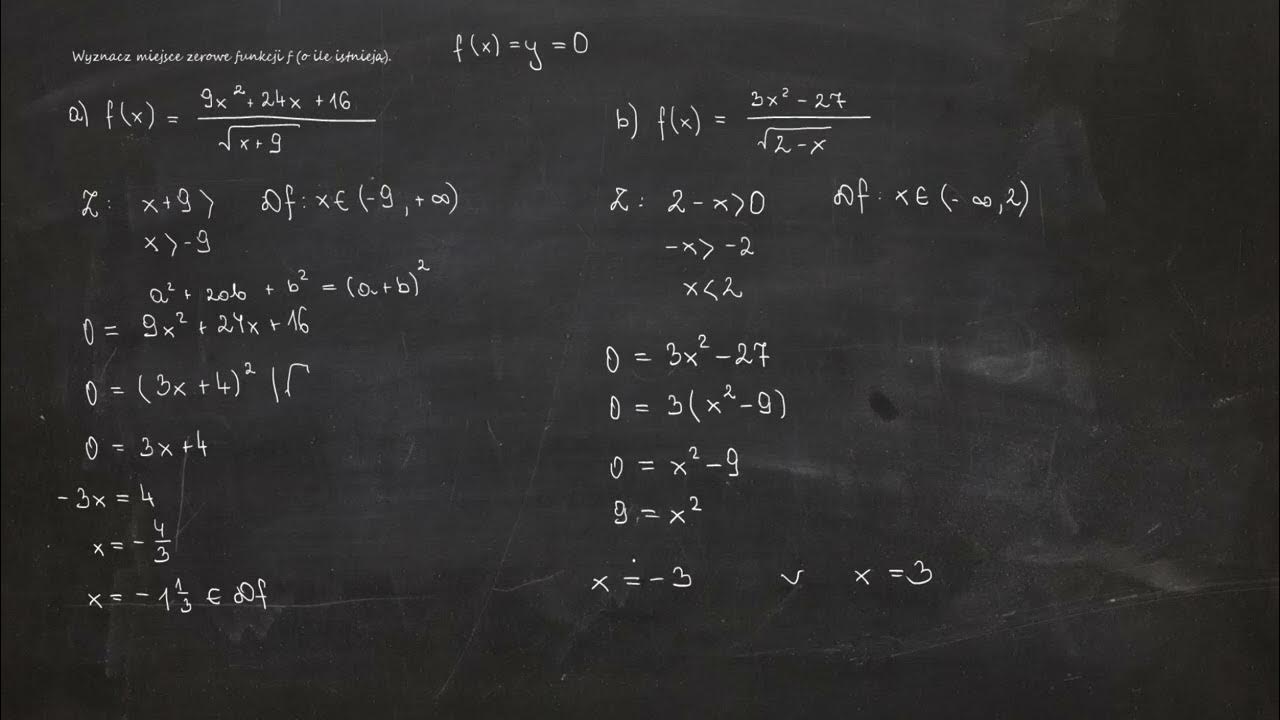 Wyznacz miejsce zerowe funkcji f (o ile istnieją).
f(x) = y = 0
a) f(x) = \frac{9x^2 + 24x + 16}{\sqrt{x+9}}
Z: x+9 > Df: x∈(-9, +∞)
x > -9
a² + 2ab + b² = (a+b)²
0 = 9x² + 24x + 16
0 = (3x + 4)² |√
0 = 3x + 4
-3x = 4
x = -\frac{4}{3}
x = -1\frac{1}{3} ∈ Df
b) f(x) = \frac{3x^2 - 27}{\sqrt{2-x}}
Z: 2 - x > 0 Df: x∈(-∞, 2)
-x > -2
x < 2
0 = 3x² - 27
0 = 3(x² - 9)
0 = x² - 9
9 = x²
x = -3 v x = 3